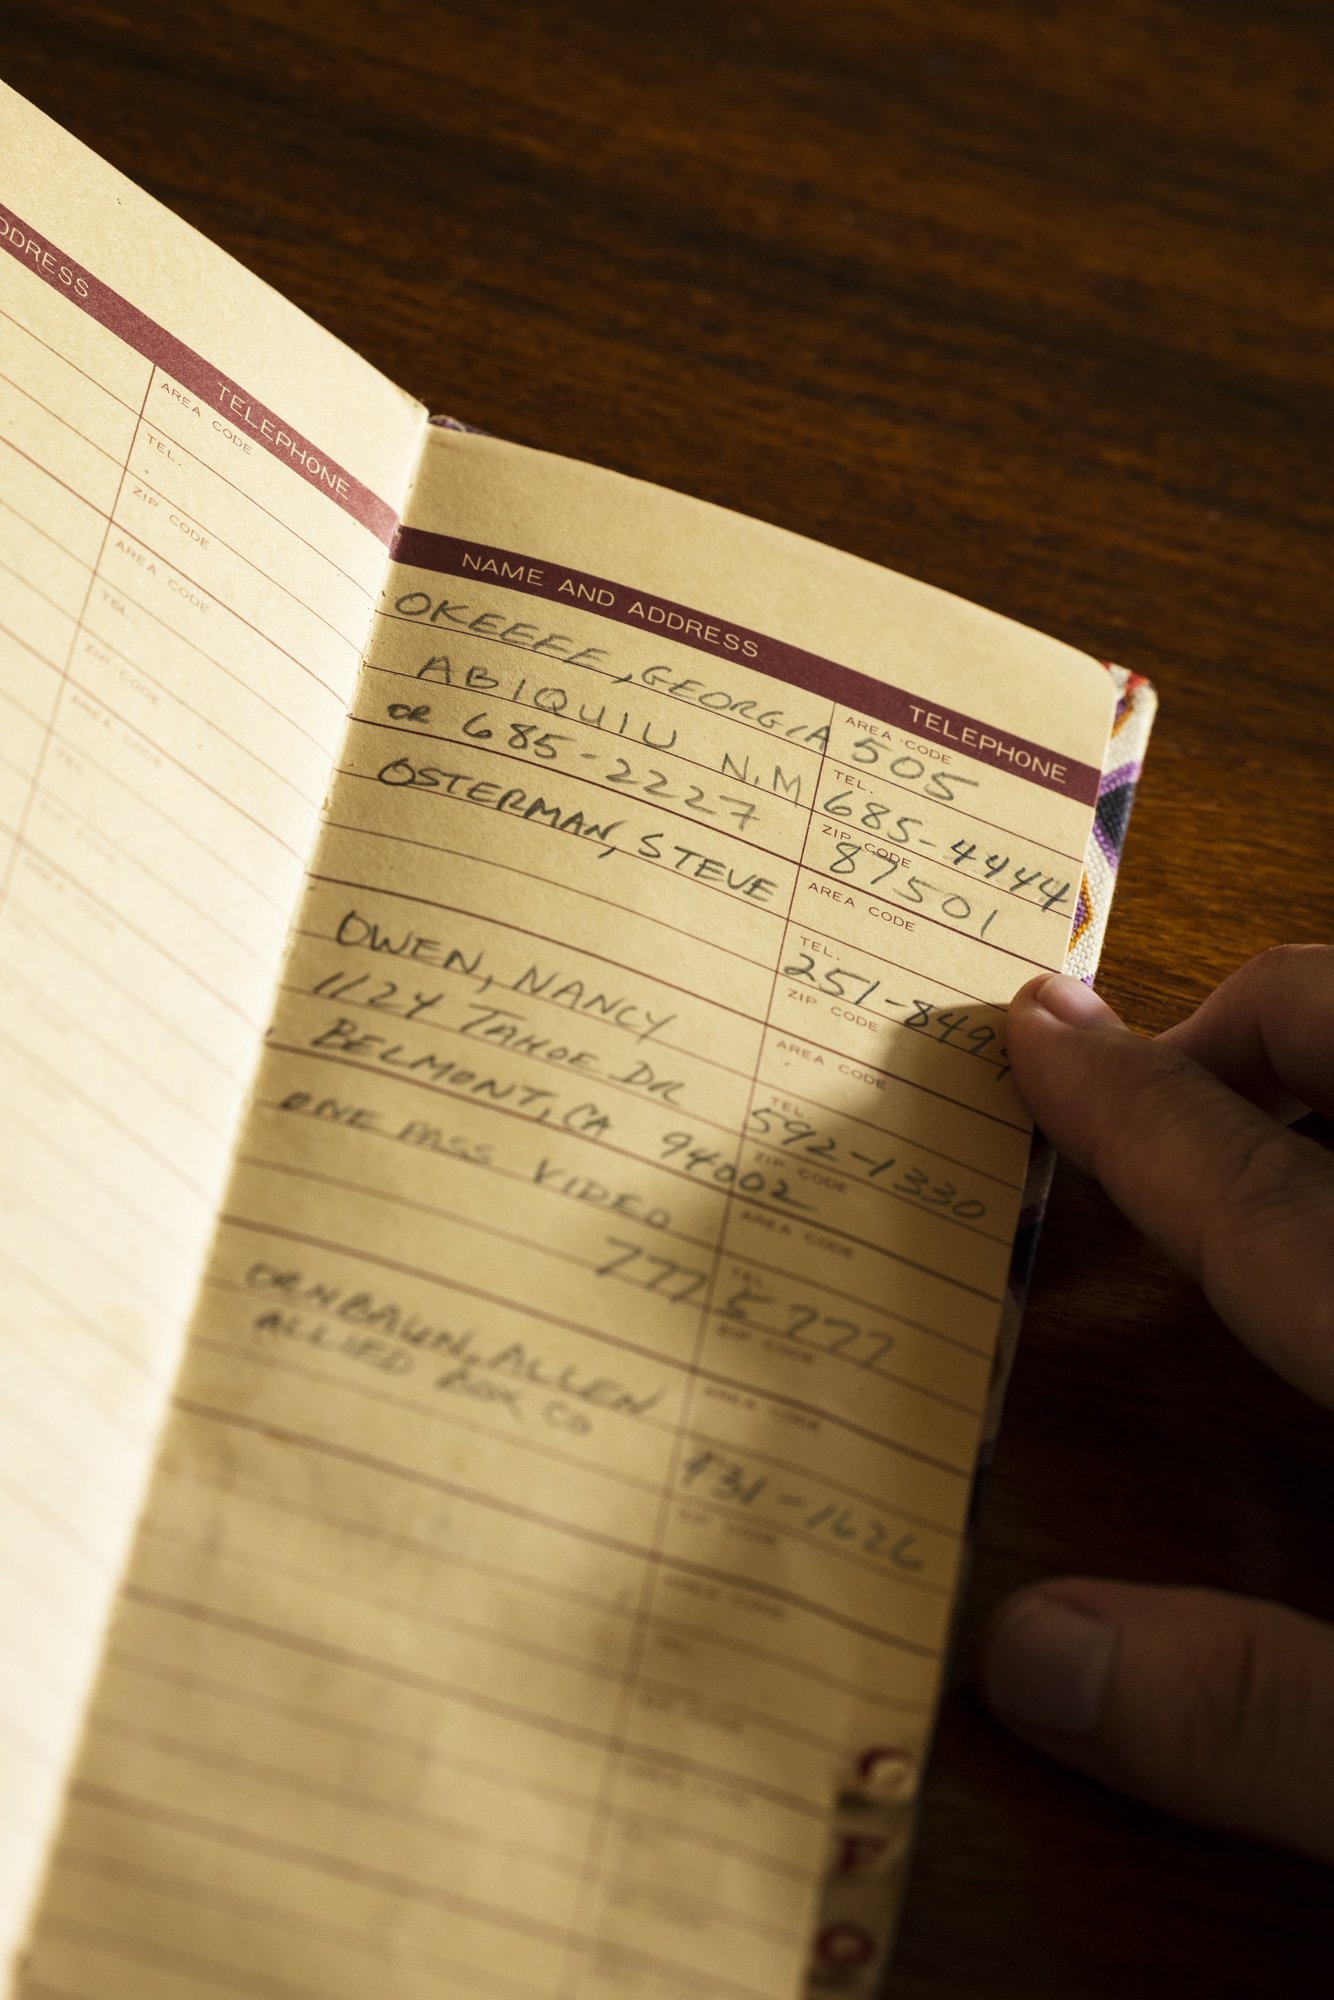 ADDRESS TELEPHONE
AREA CODE
TEL.
ZIP CODE
AREA CODE
TEL.
ZIP CODE
AREA CODE
NAME AND ADDRESS TELEPHONE
OKEEFE, GEORGIA AREA CODE 505
ABIQUIU N.M TEL. 685-4444
OR 685-2227 ZIP CODE 87501
OSTERMAN, STEVE AREA CODE
TEL. 251-849
ZIP CODE
OWEN, NANCY AREA CODE
1124 TAHOE DR TEL. 592-1330
BELMONT, CA 94002 ZIP CODE
ONE PASS VIDEO AREA CODE
777 5777 TEL.
ZIP CODE
ORNBAUN, ALLEN AREA CODE
ALLIED BOX CO
831-1626
ZIP CODE
AREA CODE